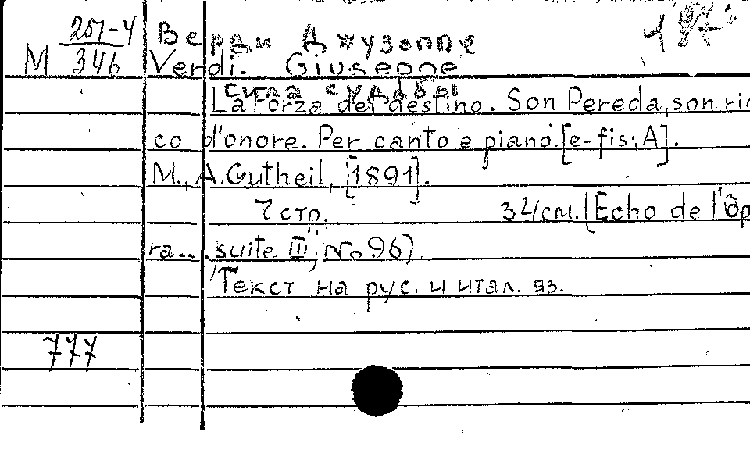 М 251-4/346 Верди Джузеппе
Verdi. Giuseppe
Сила судьбы
La forza del destino. Son Pereda, son ric
co d'onore. Per canto e piano. [e-fis; A].
M., A. Gutheil, [1891].
7 стр. 34 см. (Echo de l'op
ra... suite III, No 96).
Текст на рус. и итал. яз.
777